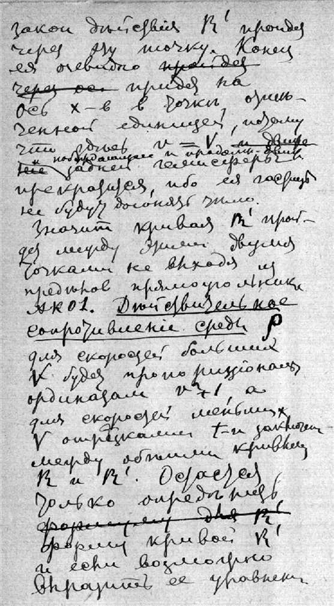 закон дѣйствія R' пройдя
через эту точку. Конец
ея очевидно пройдя
через ось придет на
ось x-в в точки, отме-
ченной единицей, потому
что здѣсь v = V и
задней гемисферы
прекратится, ибо ея частицы
не будут догонять тѣло.
Значит кривая R' прой-
дет между этими двумя
точками не выходя из
предѣлов прямоугольника
AK01. Дѣйствительное
сопротивленіе среды ρ
для скоростей больших
V будет пропорціонально
ординатам а
для скоростей меньших
V отрѣзками заключен-
между обѣими кривыми
R и R'. Остается
только опредѣлить
формулу для R'
форму кривой R'
и если возможно
выразить ее уравнени